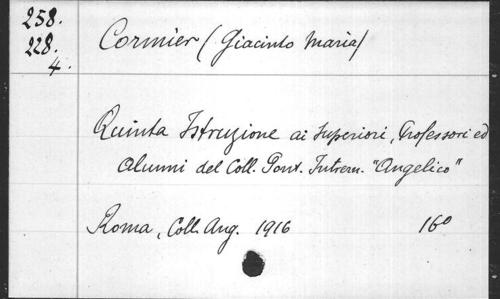 258.
228.
4.
Cormier (Giacinto Maria)
Quinta Istruzione ai Superiori, Professori ed
Alunni del Coll. Pont. Intern. "Angelico"
Roma, Coll. Ang. 1916 16º